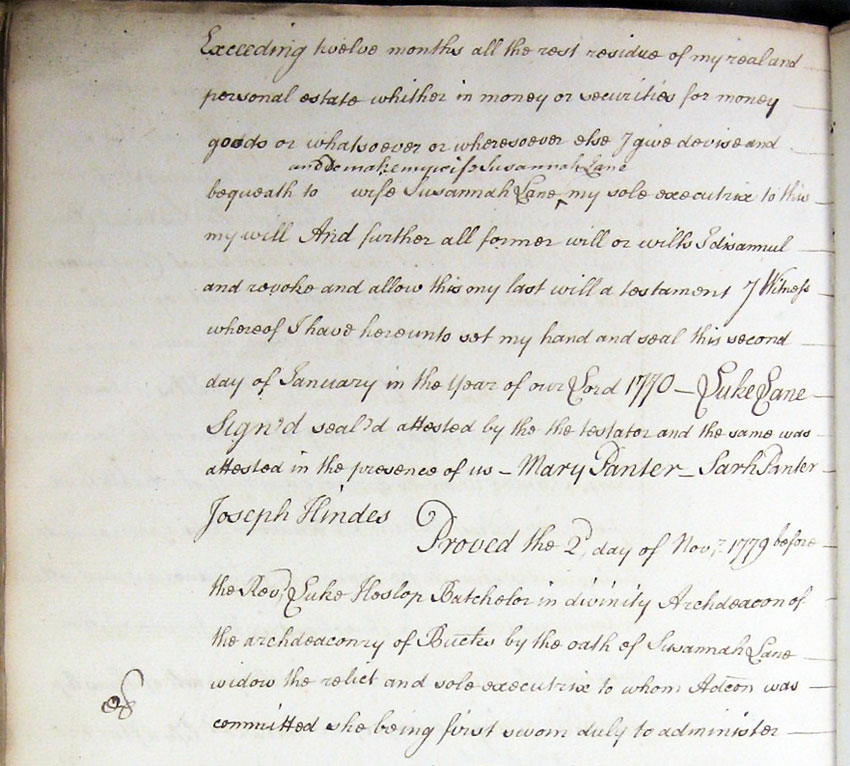 Exceeding twelve months all the rest residue of my real and
personal estate whither in money or securities for money
goods or whatsoever or wheresoever else I give devise and
and Do make my wife Susannah Lane
bequeath to wife Susannah Lane ‸ my sole executrix to this
my will And further all former will or wills I disannul
and revoke and allow this my last will & testament I Witness
whereof I have hereunto set my hand and seal this second
day of January in the Year of our Lord 1770 – Luke Lane
Sign'd seal'd attested by the the testator and the same was
attested in the presence of us – Mary Panter – Sarh Panter
Joseph Hindes
Proved the 2d, day of Novr. 1779 before
the Revd. Luke Heslop Batchelor in divinity Archdeacon of
the archdeaconry of Bucks by the oath of Susannah Lane
widow the relict and sole executrix to whom Adcon was
committed she being first sworn duly to administer